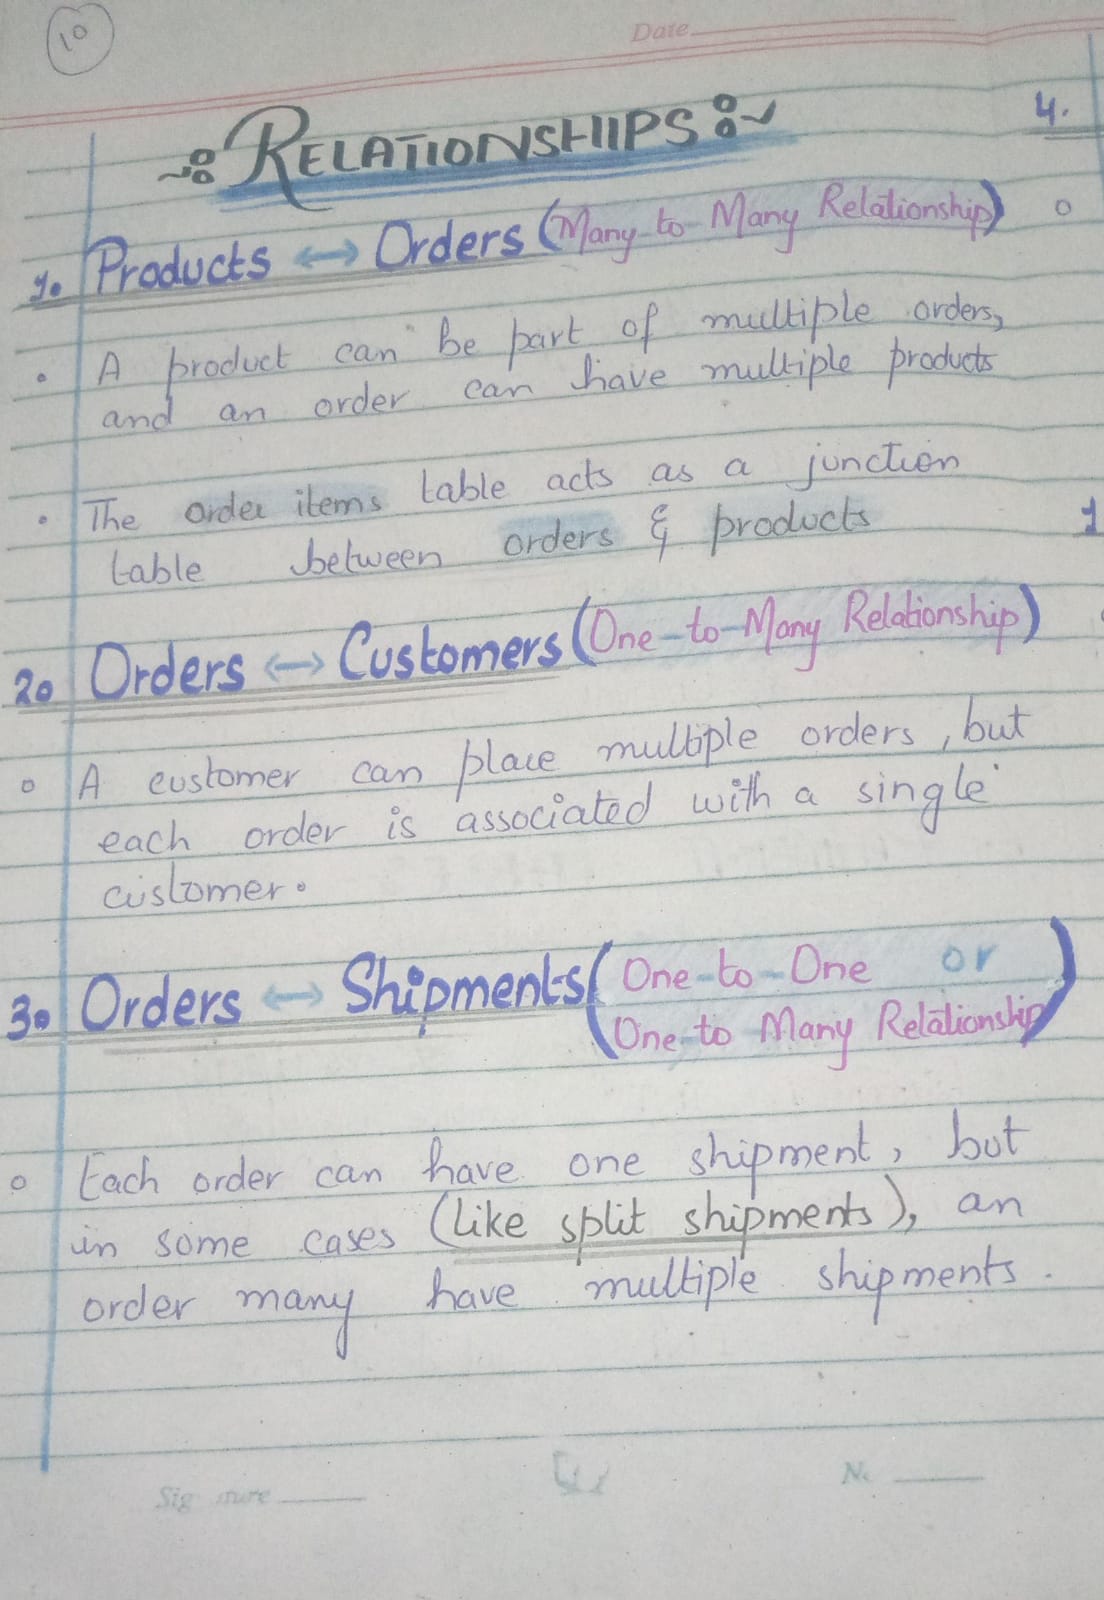 10
Date
RELATIONSHIPS
4.
1. Products ↔ Orders (Many to Many Relationship)
• A product can be part of multiple orders,
and an order can have multiple products
• The order items table acts as a junction
table between orders & products
1
2. Orders ↔ Customers (One-to-Many Relationship)
• A customer can place multiple orders, but
each order is associated with a single
customer.
3. Orders ↔ Shipments (One-to-One or
One-to Many Relationship)
• Each order can have one shipment, but
in some cases (like split shipments), an
order many have multiple shipments.